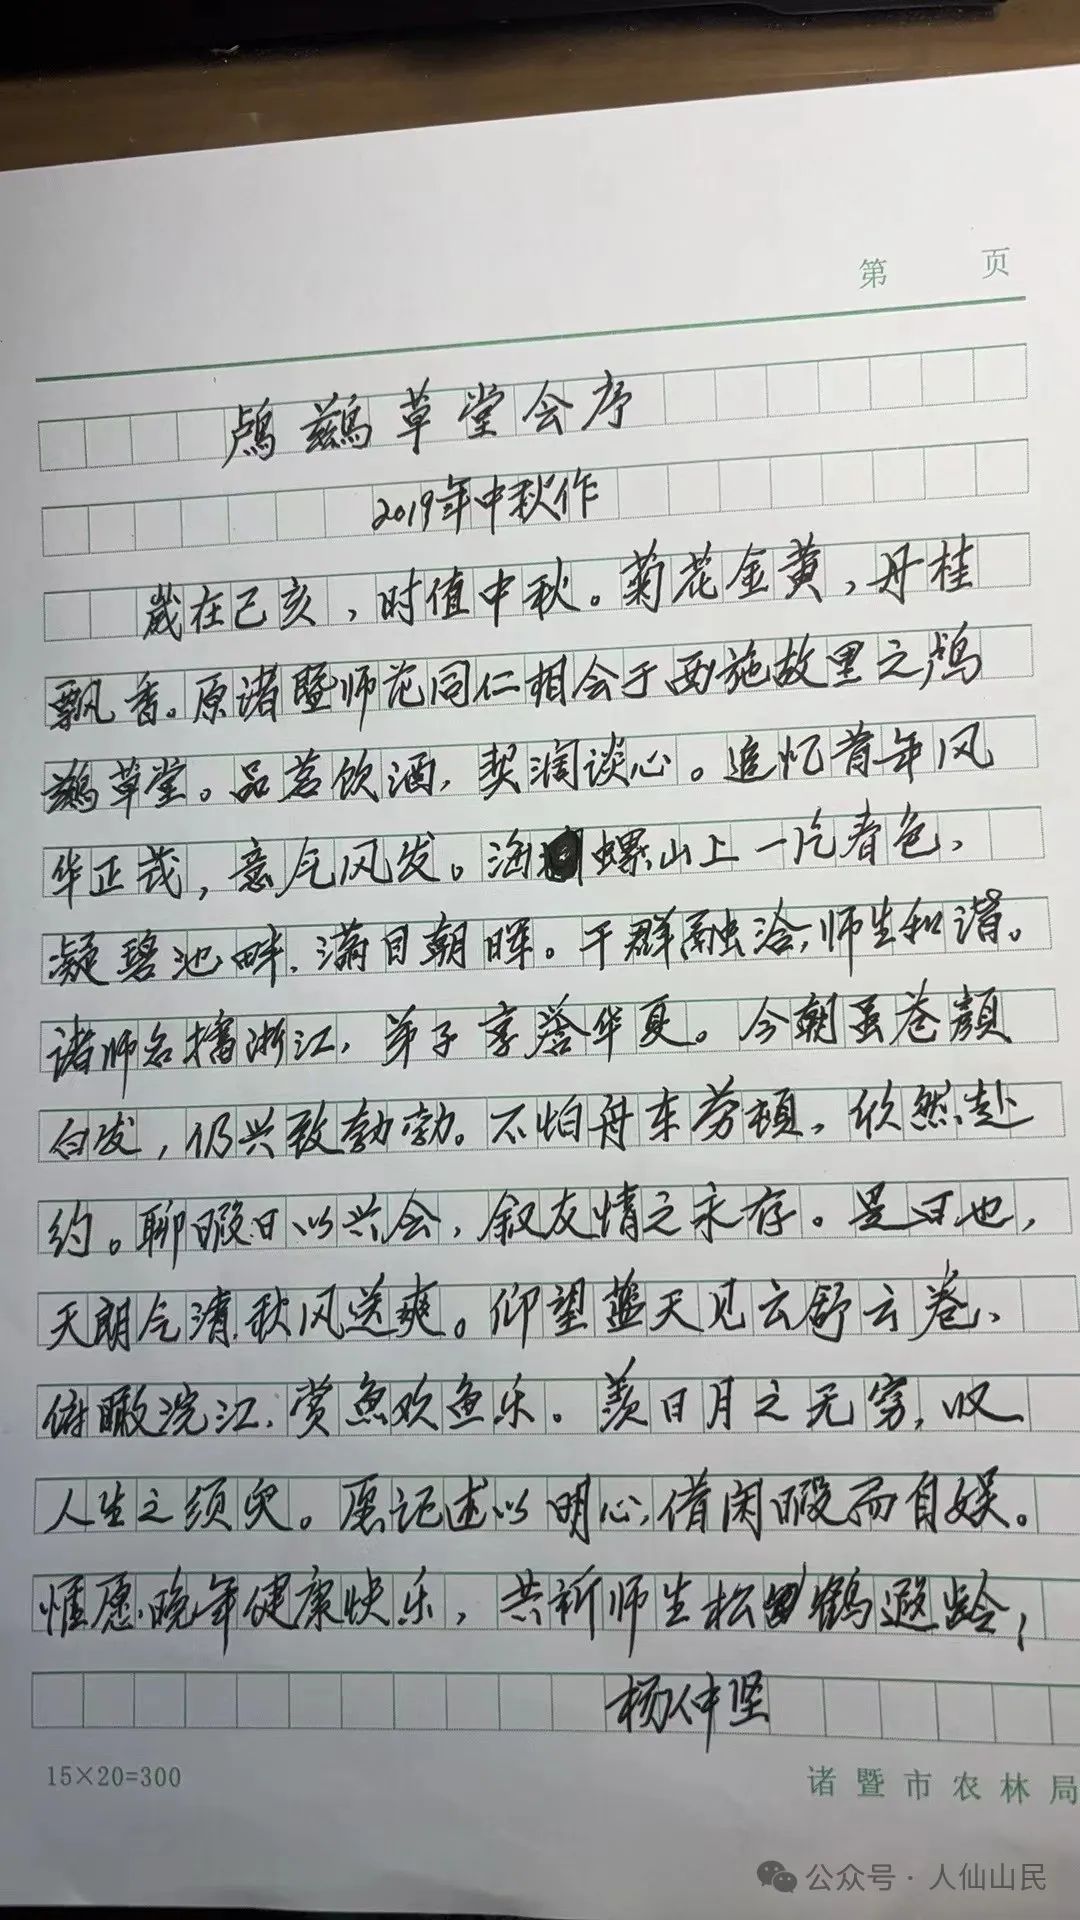 第 页
鸬鹚草堂会序
2019年中秋作
岁在己亥，时值中秋。菊花金黄，丹桂
飘香。原诸暨师范同仁相会于西施故里之鸬
鹚草堂。品茗饮酒，契阔谈心。追忆昔年风
华正茂，意气风发。海螺山上一片春色，
凝碧池畔，满目朝晖。干群融洽，师生和谐。
诸师名播浙江，弟子享誉华夏。今朝虽苍颜
白发，仍兴致勃勃。不怕舟车劳顿，欣然赴
约。聊暇日以兴会，叙友情之永存。是日也，
天朗气清，秋风送爽。仰望蓝天见云舒云卷，
俯瞰浣江，赏鱼欢鱼乐。羡日月之无穷，叹
人生之须臾。愿记述以明心，借闲暇而自娱。
惟愿晚年健康快乐，共祈师生松鹤遐龄，
杨仲坚
15×20=300
诸暨市农林局
公众号·人仙山民